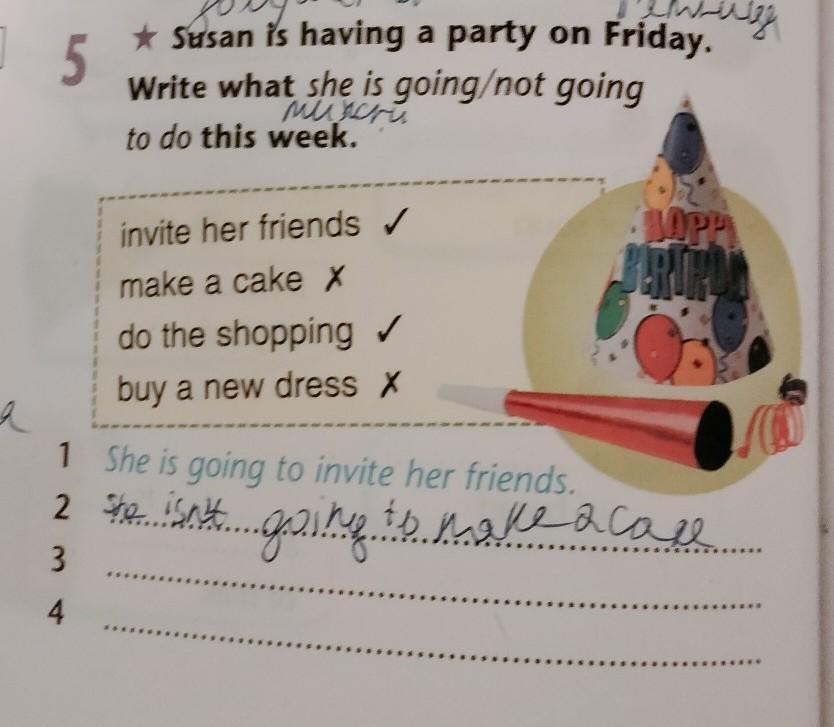 5 ★ Susan is having a party on Friday.
Write what she is going/not going
to do this week.
invite her friends ✓
make a cake ✗
do the shopping ✓
buy a new dress ✗
HAPPY
BIRTHDAY
1 She is going to invite her friends.
2 She isn't going to make a cake
3
4